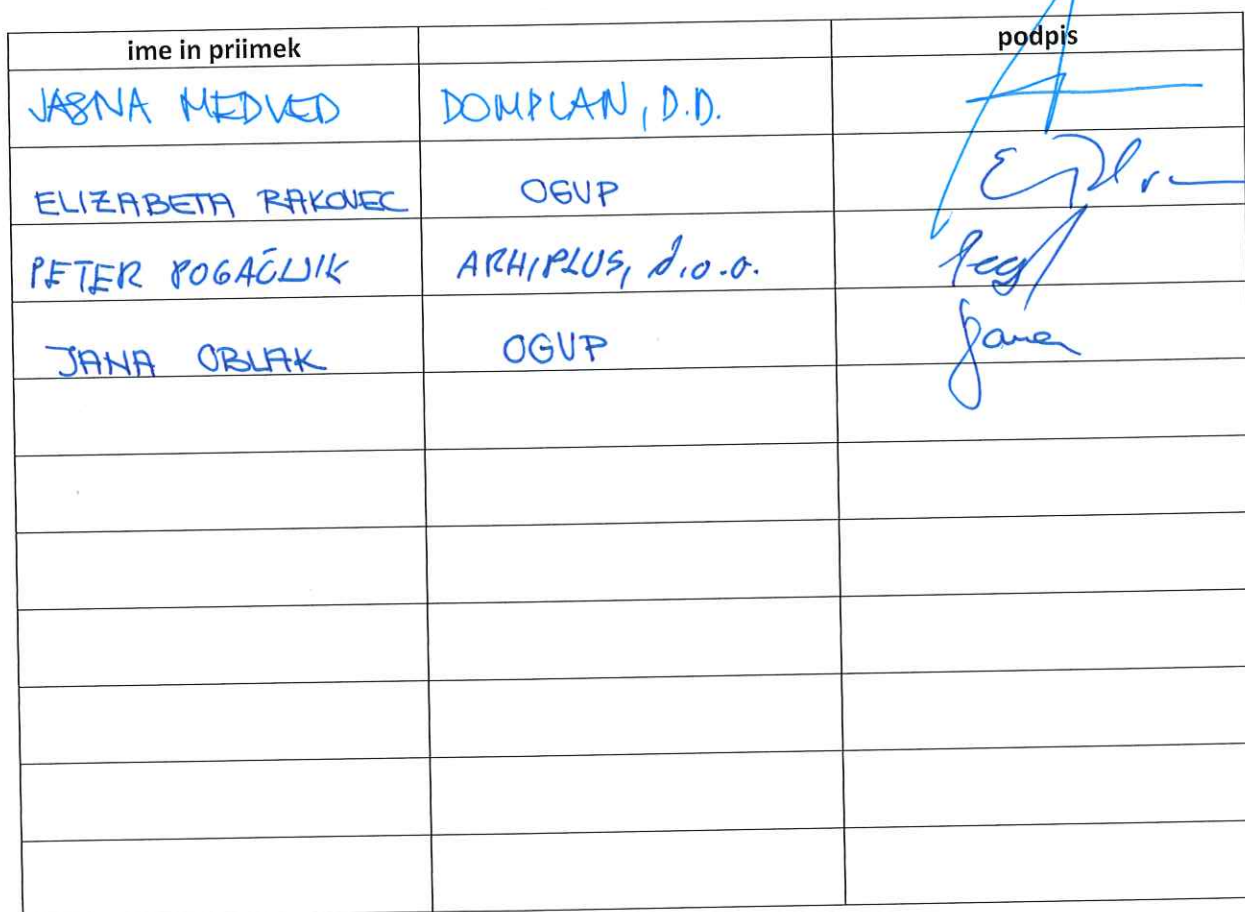 ime in priimek podpis
JASNA MEDVED DOMPLAN, D.D.
ELIZABETA RAKOVEC OGUP
PETER POGAČNIK ARHIPLUS, d.o.o.
JANA OBLAK OGUP